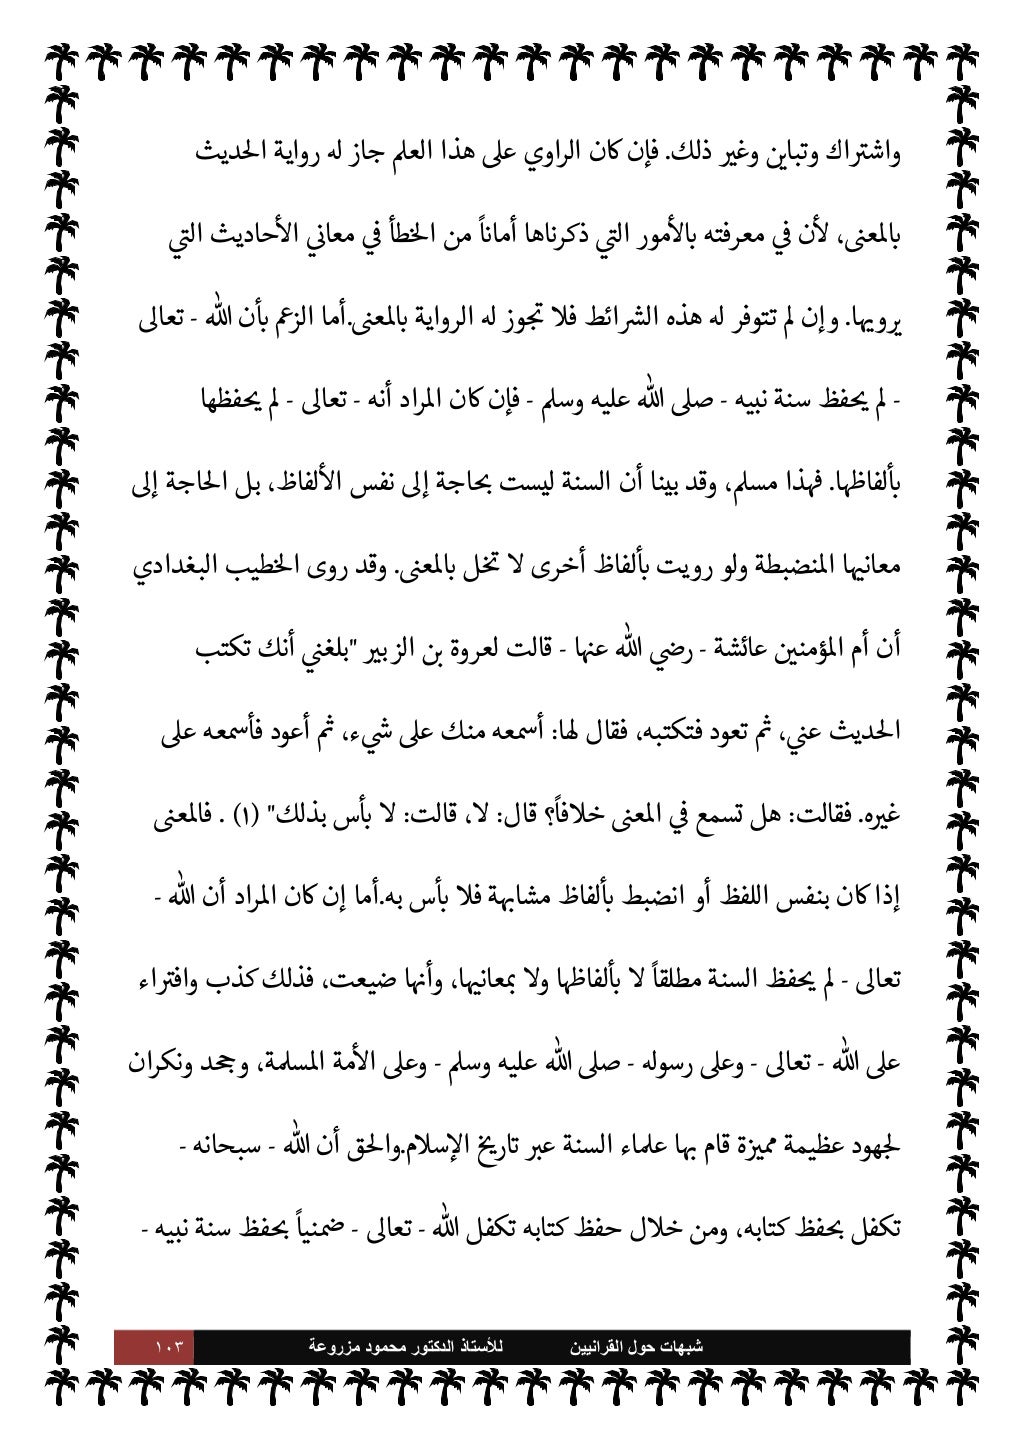 واشتراك وتباين وغير ذلك. فإن كان الراوي على هذا العلم جاز له رواية الحديث
بالمعنى، لأن في معرفته بالأمور التي ذكرناها أماناً من الخطأ في معاني الأحاديث التي
يرويها. وإن لم تتوفر له هذه الشرائط فلا تجوز له الرواية بالمعنى.أما الزعم بأن الله - تعالى
- لم يحفظ سنة نبيه - صلى الله عليه وسلم - فإن كان المراد أنه - تعالى - لم يحفظها
بألفاظها. فهذا مسلم، وقد بينا أن السنة ليست بحاجة إلى نفس الألفاظ، بل الحاجة إلى
معانيها المنضبطة ولو رويت بألفاظ أخرى لا تخل بالمعنى. وقد روى الخطيب البغدادي
أن أم المؤمنين عائشة - رضي الله عنها - قالت لعروة بن الزبير "بلغني أنك تكتب
الحديث عني، ثم تعود فتكتبه، فقال لها: أسمعه منك على شيء، ثم أعود فأسمعه على
غيره. فقالت: هل تسمع في المعنى خلافاً؟ قال: لا، قالت: لا بأس بذلك" (١) . فالمعنى
إذا كان بنفس اللفظ أو انضبط بألفاظ مشابهة فلا بأس به.أما إن كان المراد أن الله -
تعالى - لم يحفظ السنة مطلقاً لا بألفاظها ولا بمعانيها، وأنها ضيعت، فذلك كذب وافتراء
على الله - تعالى - وعلى رسوله - صلى الله عليه وسلم - وعلى الأمة المسلمة، وجحد ونكران
لجهود عظيمة مميزة قام بها علماء السنة عبر تاريخ الإسلام.والحق أن الله - سبحانه -
تكفل بحفظ كتابه، ومن خلال حفظ كتابه تكفل الله - تعالى - ضمنياً بحفظ سنة نبيه -
شبهات حول القرانيين للأستاذ الدكتور محمود مزروعة ١٠٣